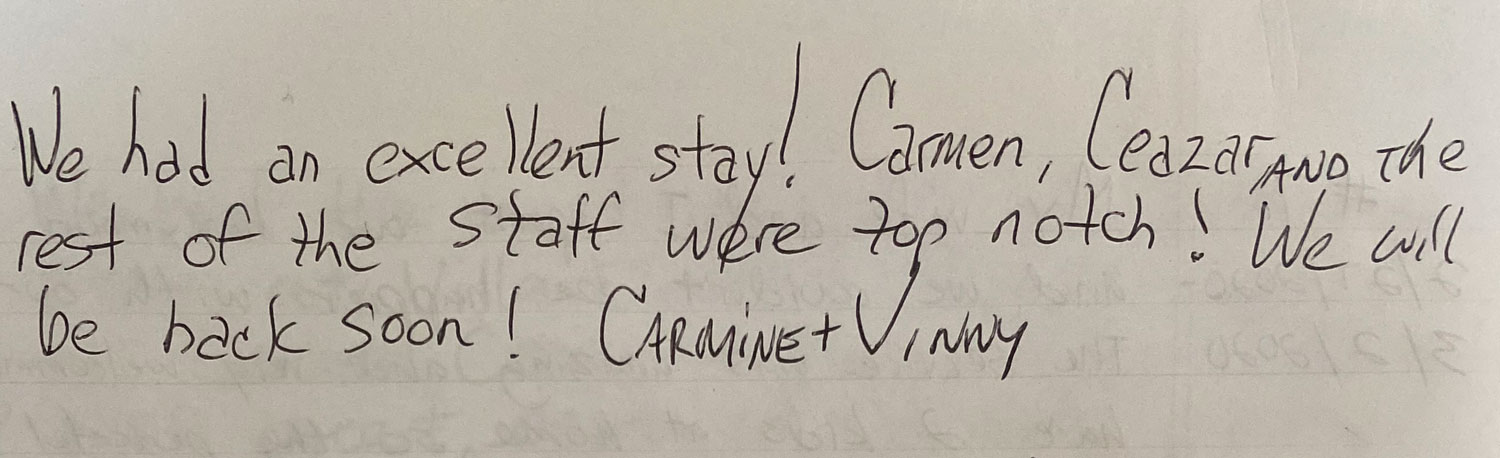 We had an excellent stay! Carmen, Ceazar AND the
rest of the staff were top notch! We will
be back soon! CARMINE + VINNY